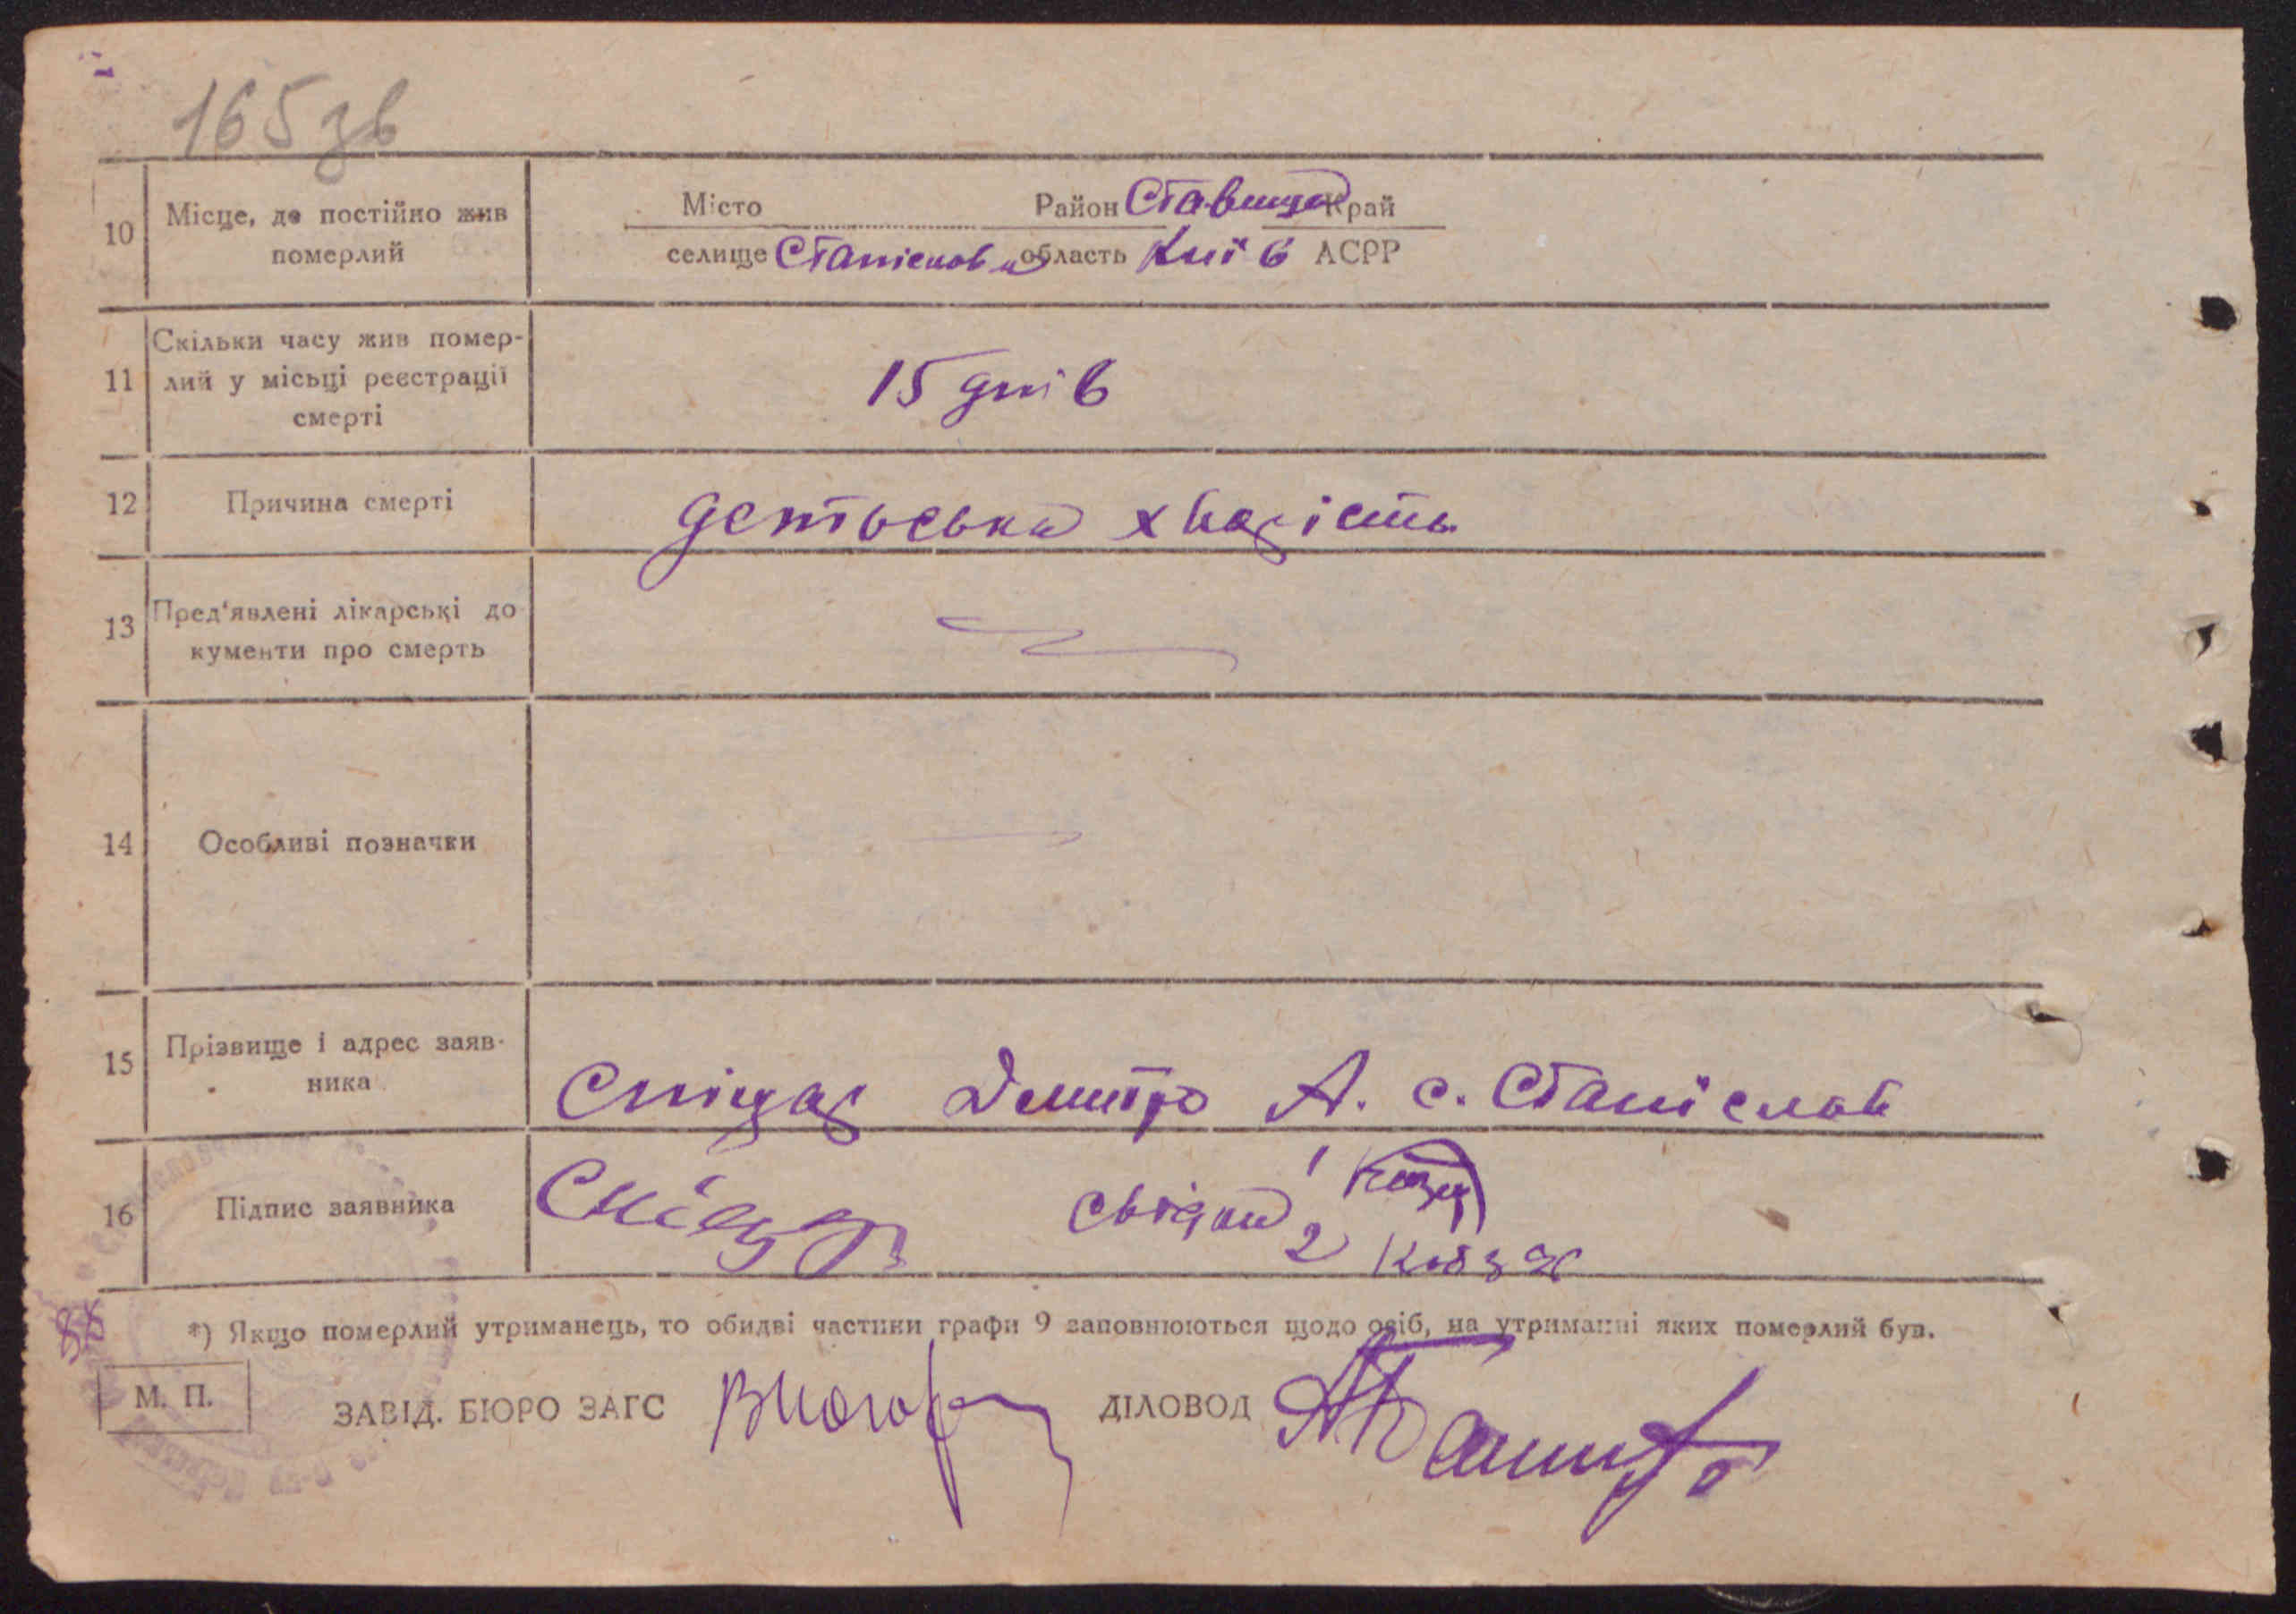 165 зв
10 Місце, де постійно жив померлий
Місто Район Ставище Край
селище Станіслав область Київ АСРР
11 Скільки часу жив помер-
лий у місьці реєстрації
смерті
15 днів
12 Причина смерті
13 Пред'явлені лікарські до
кументи про смерть
14 Особливі позначки
15 Прізвище і адрес заяв-
ника
Дмитро А. с. Станіслав
16 Підпис заявника
свідки 1
2
*) Якщо померлий утриманець, то обидві частини графи 9 заповнюються щодо осіб, на утриманні яких померлий був.
М. П.
ЗАВІД. БЮРО ЗАГС
ДІЛОВОД